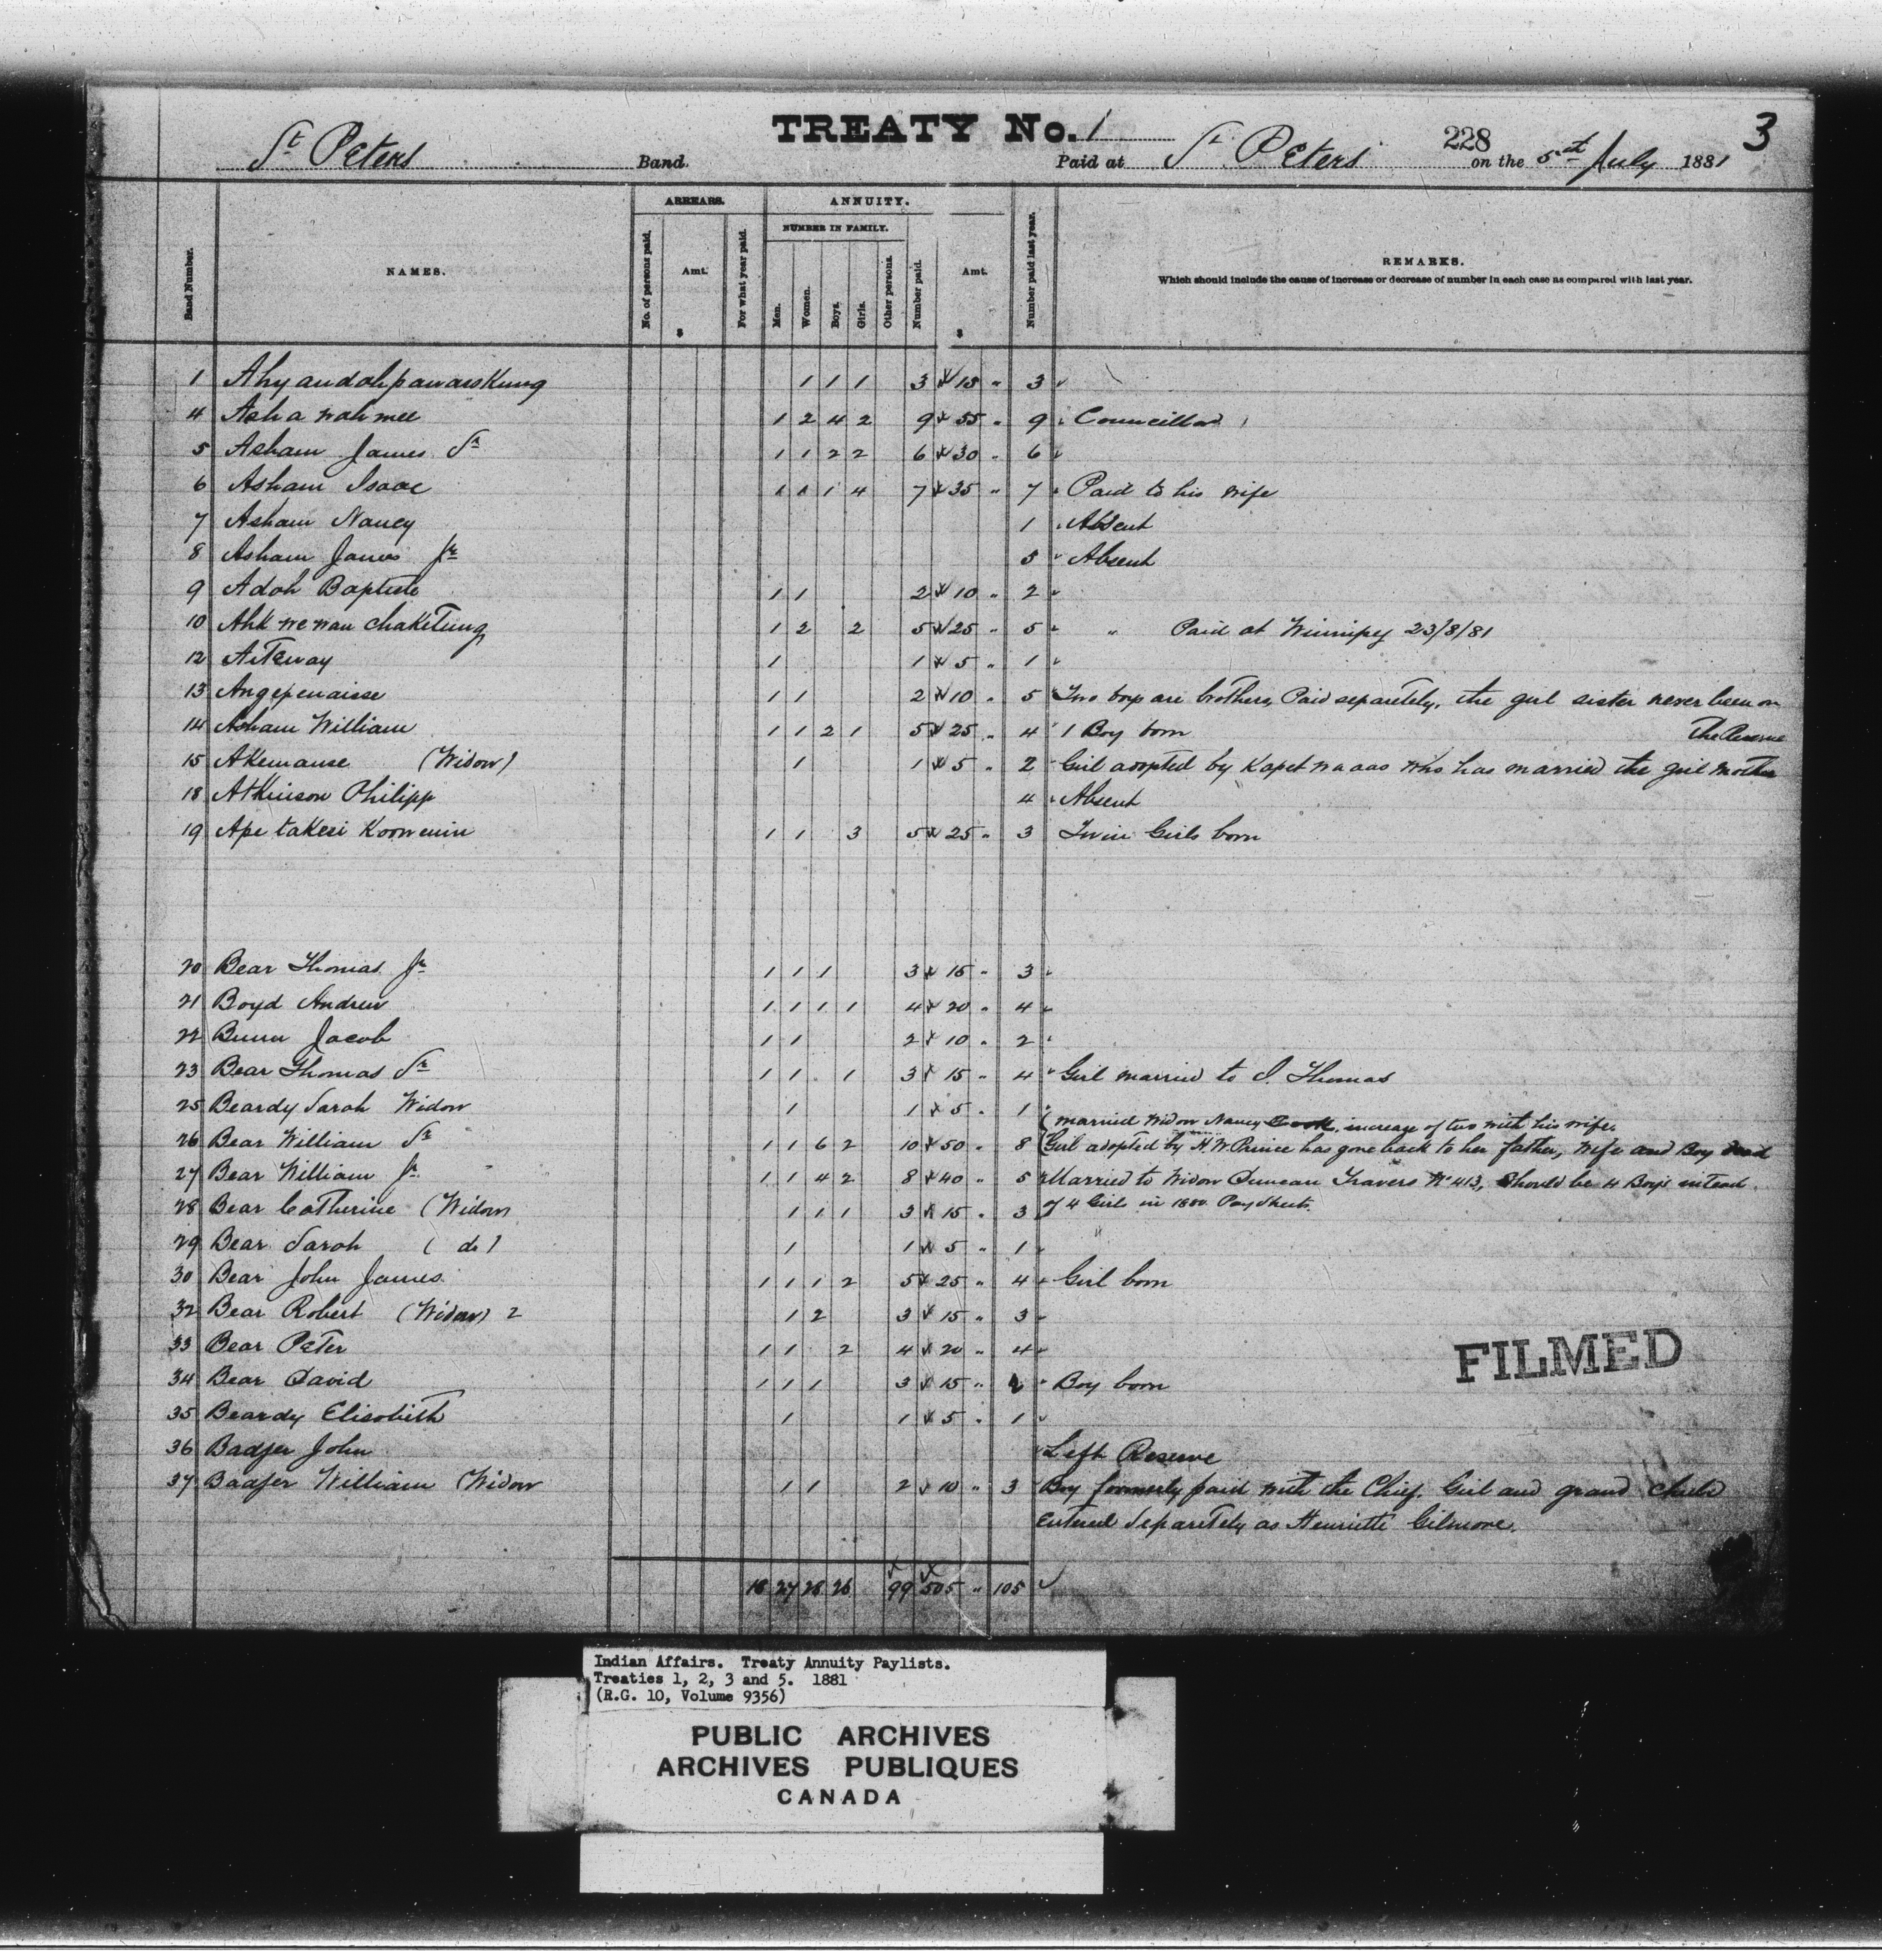 TREATY No. 1
228
3
St Peters Band.
Paid at St Peters on the 5th July 1881
ARREARS.
ANNUITY.
NUMBER IN FAMILY.
Band Number.
NAMES.
No. of persons paid.
Amt.
$
For what year paid.
Men.
Women.
Boys.
Girls.
Other persons.
Number paid.
Amt.
$
Number paid last year.
REMARKS.
Which should include the cause of increase or decrease of number in each case as compared with last year.
1 1 1 1 3 15 " 3
4 Ash a wah mee 1 2 4 2 9 55 " 9 Councillor
5 Asham James Sr 1 1 2 2 6 30 " 6
6 Asham Isaac 1 1 1 4 7 35 " 7 Paid to his wife
7 Asham Nancy 1 Absent
8 Asham James Jr 5 Absent
9 Adoh Baptiste 1 1 2 10 " 2
10 Ahk we wau chakitung 1 2 2 5 25 " 5 " Paid at Winnipeg 23/8/81
12 Aiteway 1 1 5 " 1
13 Angepenaisse 1 1 2 10 " 5 Two boys are brothers, Paid separetely, the girl sister never been on
The Reserve
14 Asham William 1 1 2 1 5 25 " 4 1 Boy born
15 Akemause (Widow) 1 1 5 " 2 Girl adopted by Kapetwaas who has married the girl mother
18 Atkinson Philipp 4 Absent
19 Ape takesi Koowenin 1 1 3 5 25 " 3 Twin Girls born
20 Bear Thomas Jr 1 1 1 3 15 " 3
21 Boyd Andrew 1 1 1 1 4 20 " 4
22 Bunn Jacob 1 1 2 10 " 2
23 Bear Thomas Sr 1 1 1 3 15 " 4 Girl married to J. Thomas
25 Beardy Sarah Widow 1 1 5 " 1
(married Widow Nancy Cook, increase of two with his wife.
26 Bear William Sr 1 1 6 2 10 50 " 8 (Girl adopted by H. W. Prince has gone back to her father, Wife and Boy dead
27 Bear William Jr 1 1 4 2 8 40 " 5 Married to Widow Duncan Travers No 413, Should be 4 Boys instead
of 4 Girls in 1880 Pay Sheets.
28 Bear Catherine (Widow) 1 1 1 3 15 " 3
29 Bear Sarah ( do ) 1 1 5 " 1
30 Bear John James 1 1 1 2 5 25 " 4 Girl born
32 Bear Robert (Widow) 2 1 2 3 15 " 3
33 Bear Peter 1 1 2 4 20 " 4
34 Bear David 1 1 1 3 15 " 2 Boy born
35 Beardy Elisobith 1 1 5 " 1
36 Badjer John Left Reserve
37 Badjer William (Widow 1 1 2 10 " 3 Boy formerly paid with the Chief, Girl and grand child
Entered Separetely as Henriette Gilmore.
18 27 28 26 99 505 " 105
FILMED
Indian Affairs. Treaty Annuity Paylists.
Treaties 1, 2, 3 and 5. 1881
(R.G. 10, Volume 9356)
PUBLIC ARCHIVES
ARCHIVES PUBLIQUES
CANADA